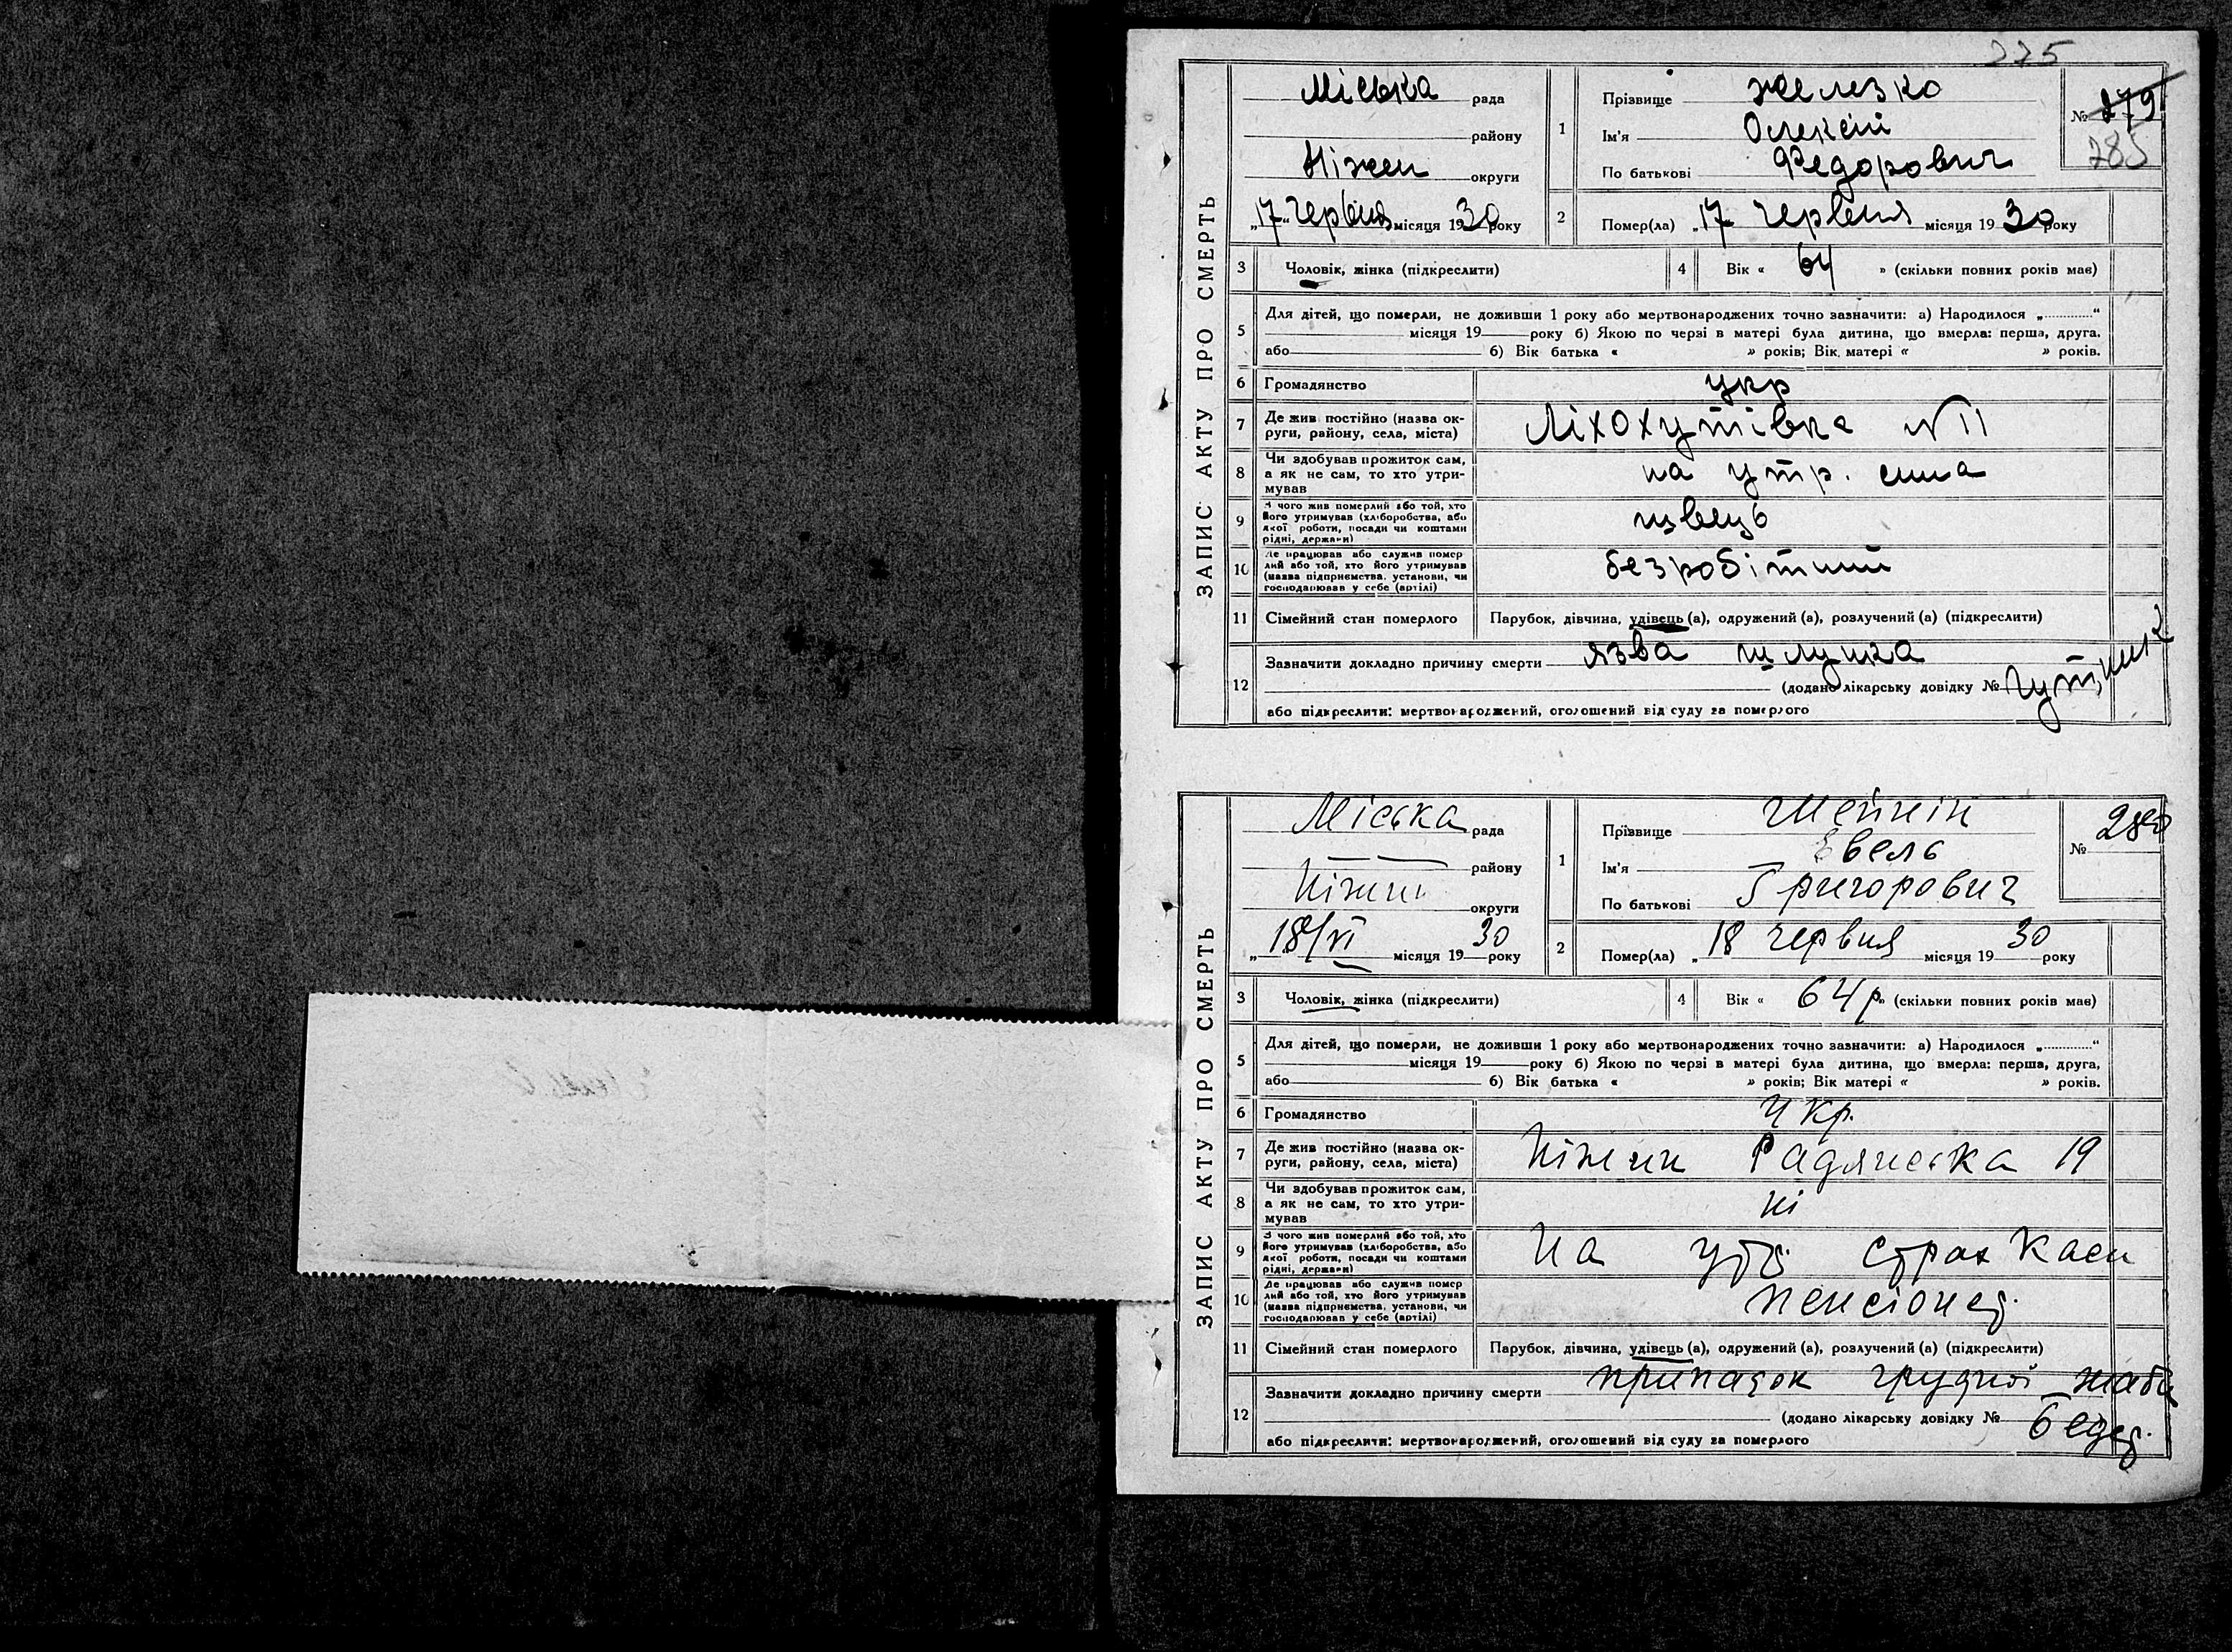 275
ЗАПИС АКТУ ПРО СМЕРТЬ
Міська рада
району
Ніжен округи
„17" Червня місяця 1930 року
1
Прізвище Железко
Ім'я Олексій
По батькові Федорович
№ 279
285
2 Помер(ла) „17 Червня місяця 1930 року
3 Чоловік, жінка (підкреслити)
4 Вік « 64 » (скільки повних років має)
5 Для дітей, що померли, не доживши 1 року або мертвонароджених точно зазначити: а) Народилося „ “
місяця 19 року б) Якою по черзі в матері була дитина, що вмерла: перша, друга,
або б) Вік батька « » років; Вік матері « » років.
6 Громадянство укр
7 Де жив постійно (назва ок-
руги, району, села, міста) Ліхохутівка №11
8 Чи здобував прожиток сам,
а як не сам, то хто утри-
мував на утр. сина
9 З чого жив померлий або той, хто
його утримував (хліборобства, або
якої роботи, посади чи коштами
рідні, держави) швець
10 Де працював або служив помер
лий або той, хто його утримував
(назва підприємства, установи, чи
господарював у себе (артілі) безробітний
11 Сімейний стан померлого Парубок, дівчина, удівець (а), одружений (а), розлучений (а) (підкреслити)
12 Зазначити докладно причину смерти язва шлунка
(додано лікарську довідку №
або підкреслити: мертвонароджений, оголошений від суду за померлого
ЗАПИС АКТУ ПРО СМЕРТЬ
Міська рада
району
Ніжин округи
„18/VI місяця 1930 року
1
Прізвище Шейнін
Ім'я Евель
По батькові Григорович
№ 280
2 Помер(ла) „18 червня місяця 1930 року
3 Чоловік, жінка (підкреслити)
4 Вік « 64 р» (скільки повних років має)
5 Для дітей, що померли, не доживши 1 року або мертвонароджених точно зазначити: а) Народилося „ “
місяця 19 року б) Якою по черзі в матері була дитина, що вмерла: перша, друга,
або б) Вік батька « » років; Вік матері « » років.
6 Громадянство Укр.
7 Де жив постійно (назва ок-
руги, району, села, міста) Ніжин Радянська 19
8 Чи здобував прожиток сам,
а як не сам, то хто утри-
мував ні
9 З чого жив померлий або той, хто
його утримував (хліборобства, або
якої роботи, посади чи коштами
рідні, держави) На утр. страх каси
10 Де працював або служив помер
лий або той, хто його утримував
(назва підприємства, установи, чи
господарював у себе (артілі) пенсіонер.
11 Сімейний стан померлого Парубок, дівчина, удівець (а), одружений (а), розлучений (а) (підкреслити)
12 Зазначити докладно причину смерти припадок грудної жаби
(додано лікарську довідку №
або підкреслити: мертвонароджений, оголошений від суду за померлого